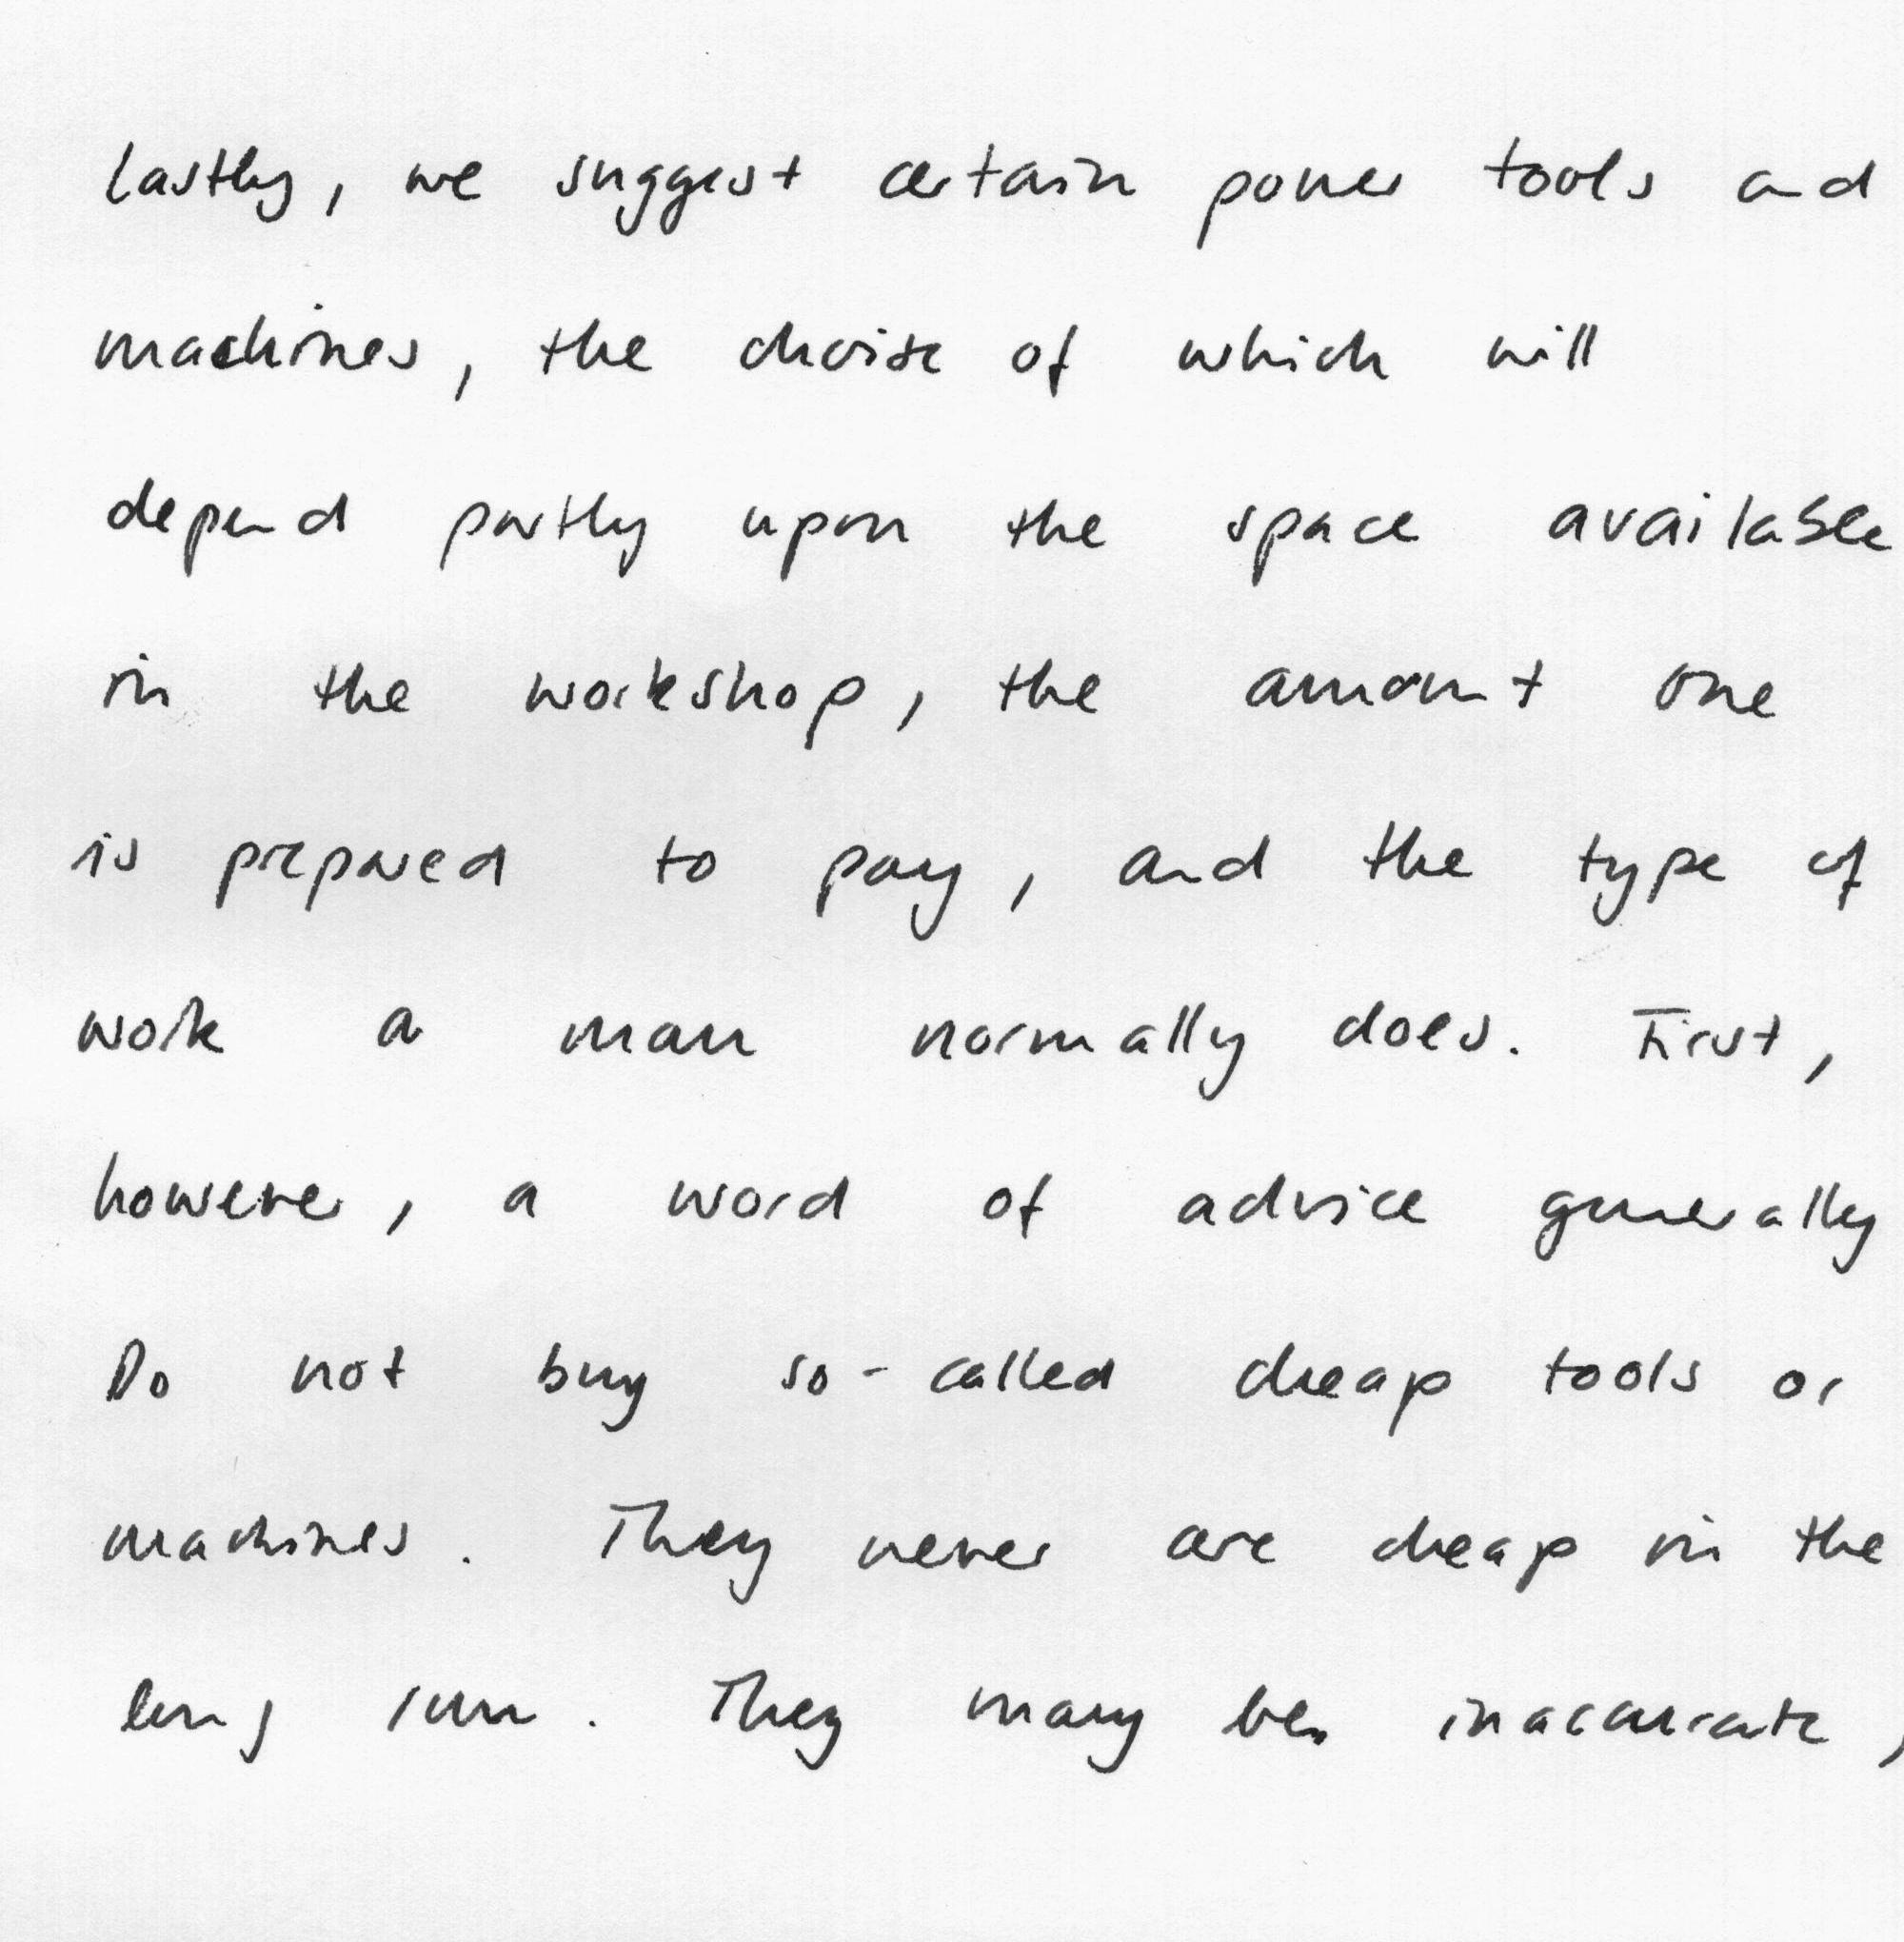 Lastly, we suggest certain power tools and
machines, the choise of which will
depend partly upon the space available
in the workshop, the amount one
is prepared to pay, and the type of
work a man normally does. First,
however, a word of advice generally
Do not buy so-called cheap tools or
machines. They never are cheap in the
long run. They may be inaccurate,